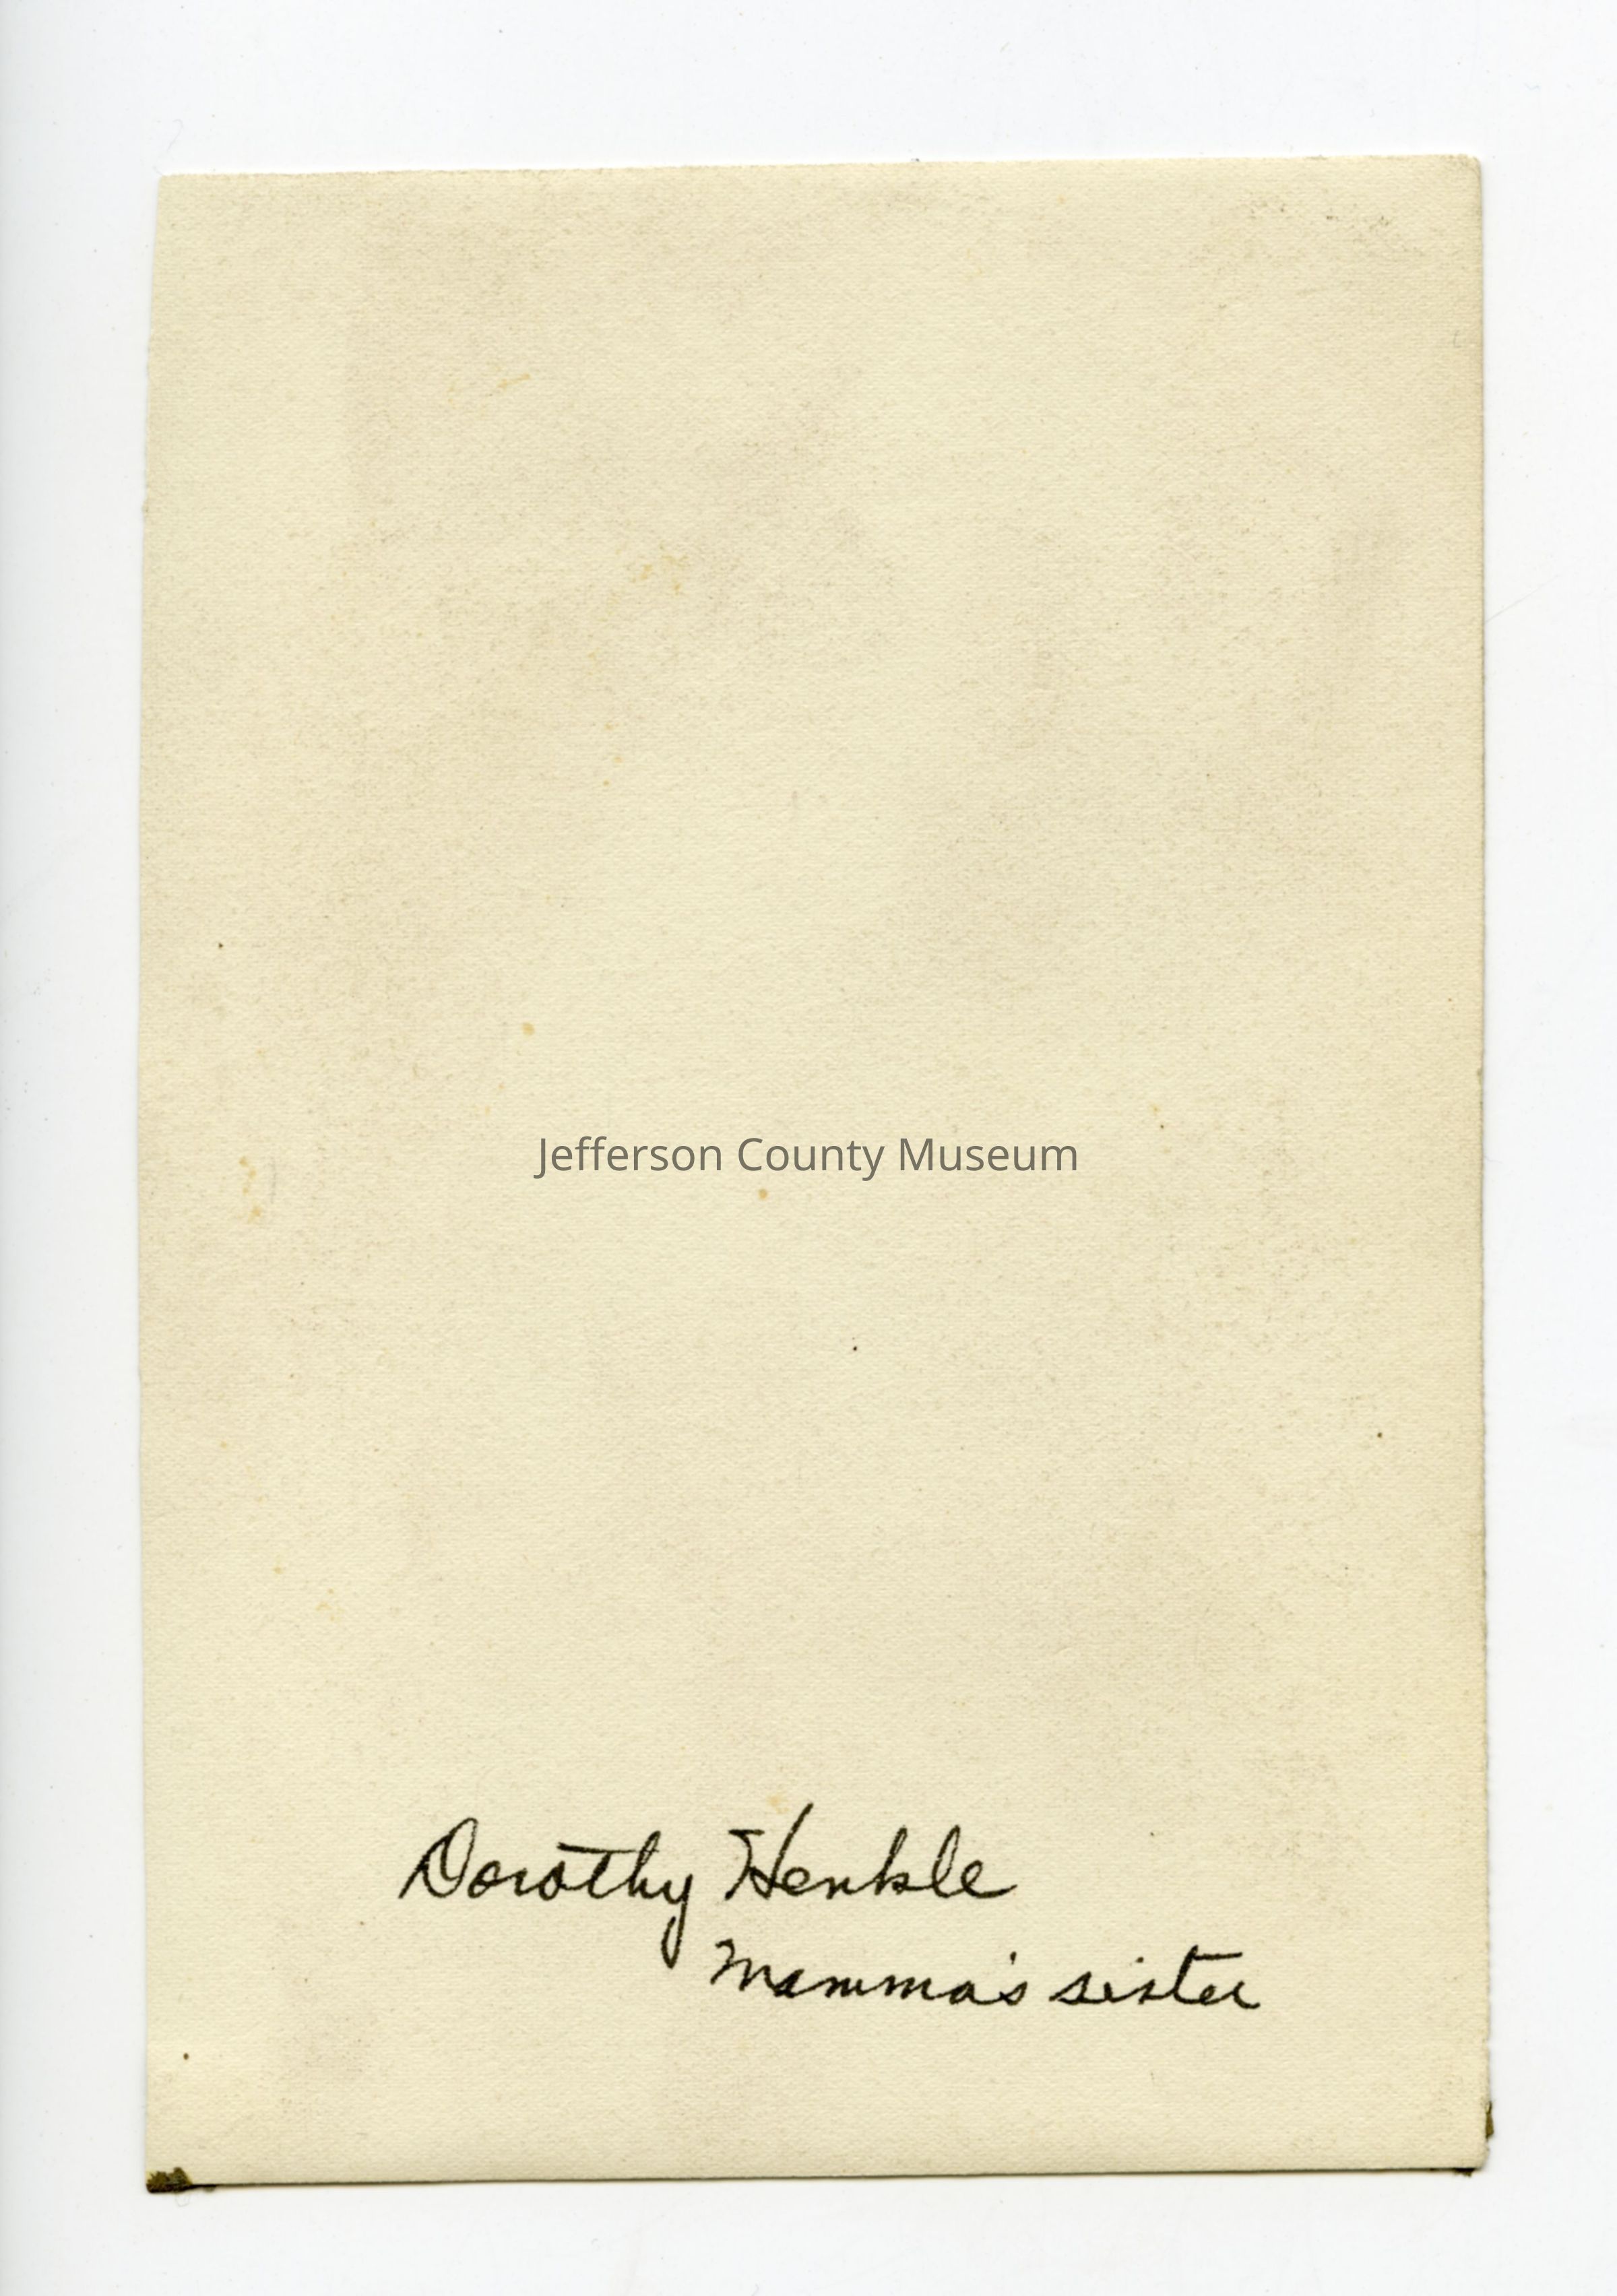 Jefferson County Museum
Dorothy Henkle
Mamma's sister